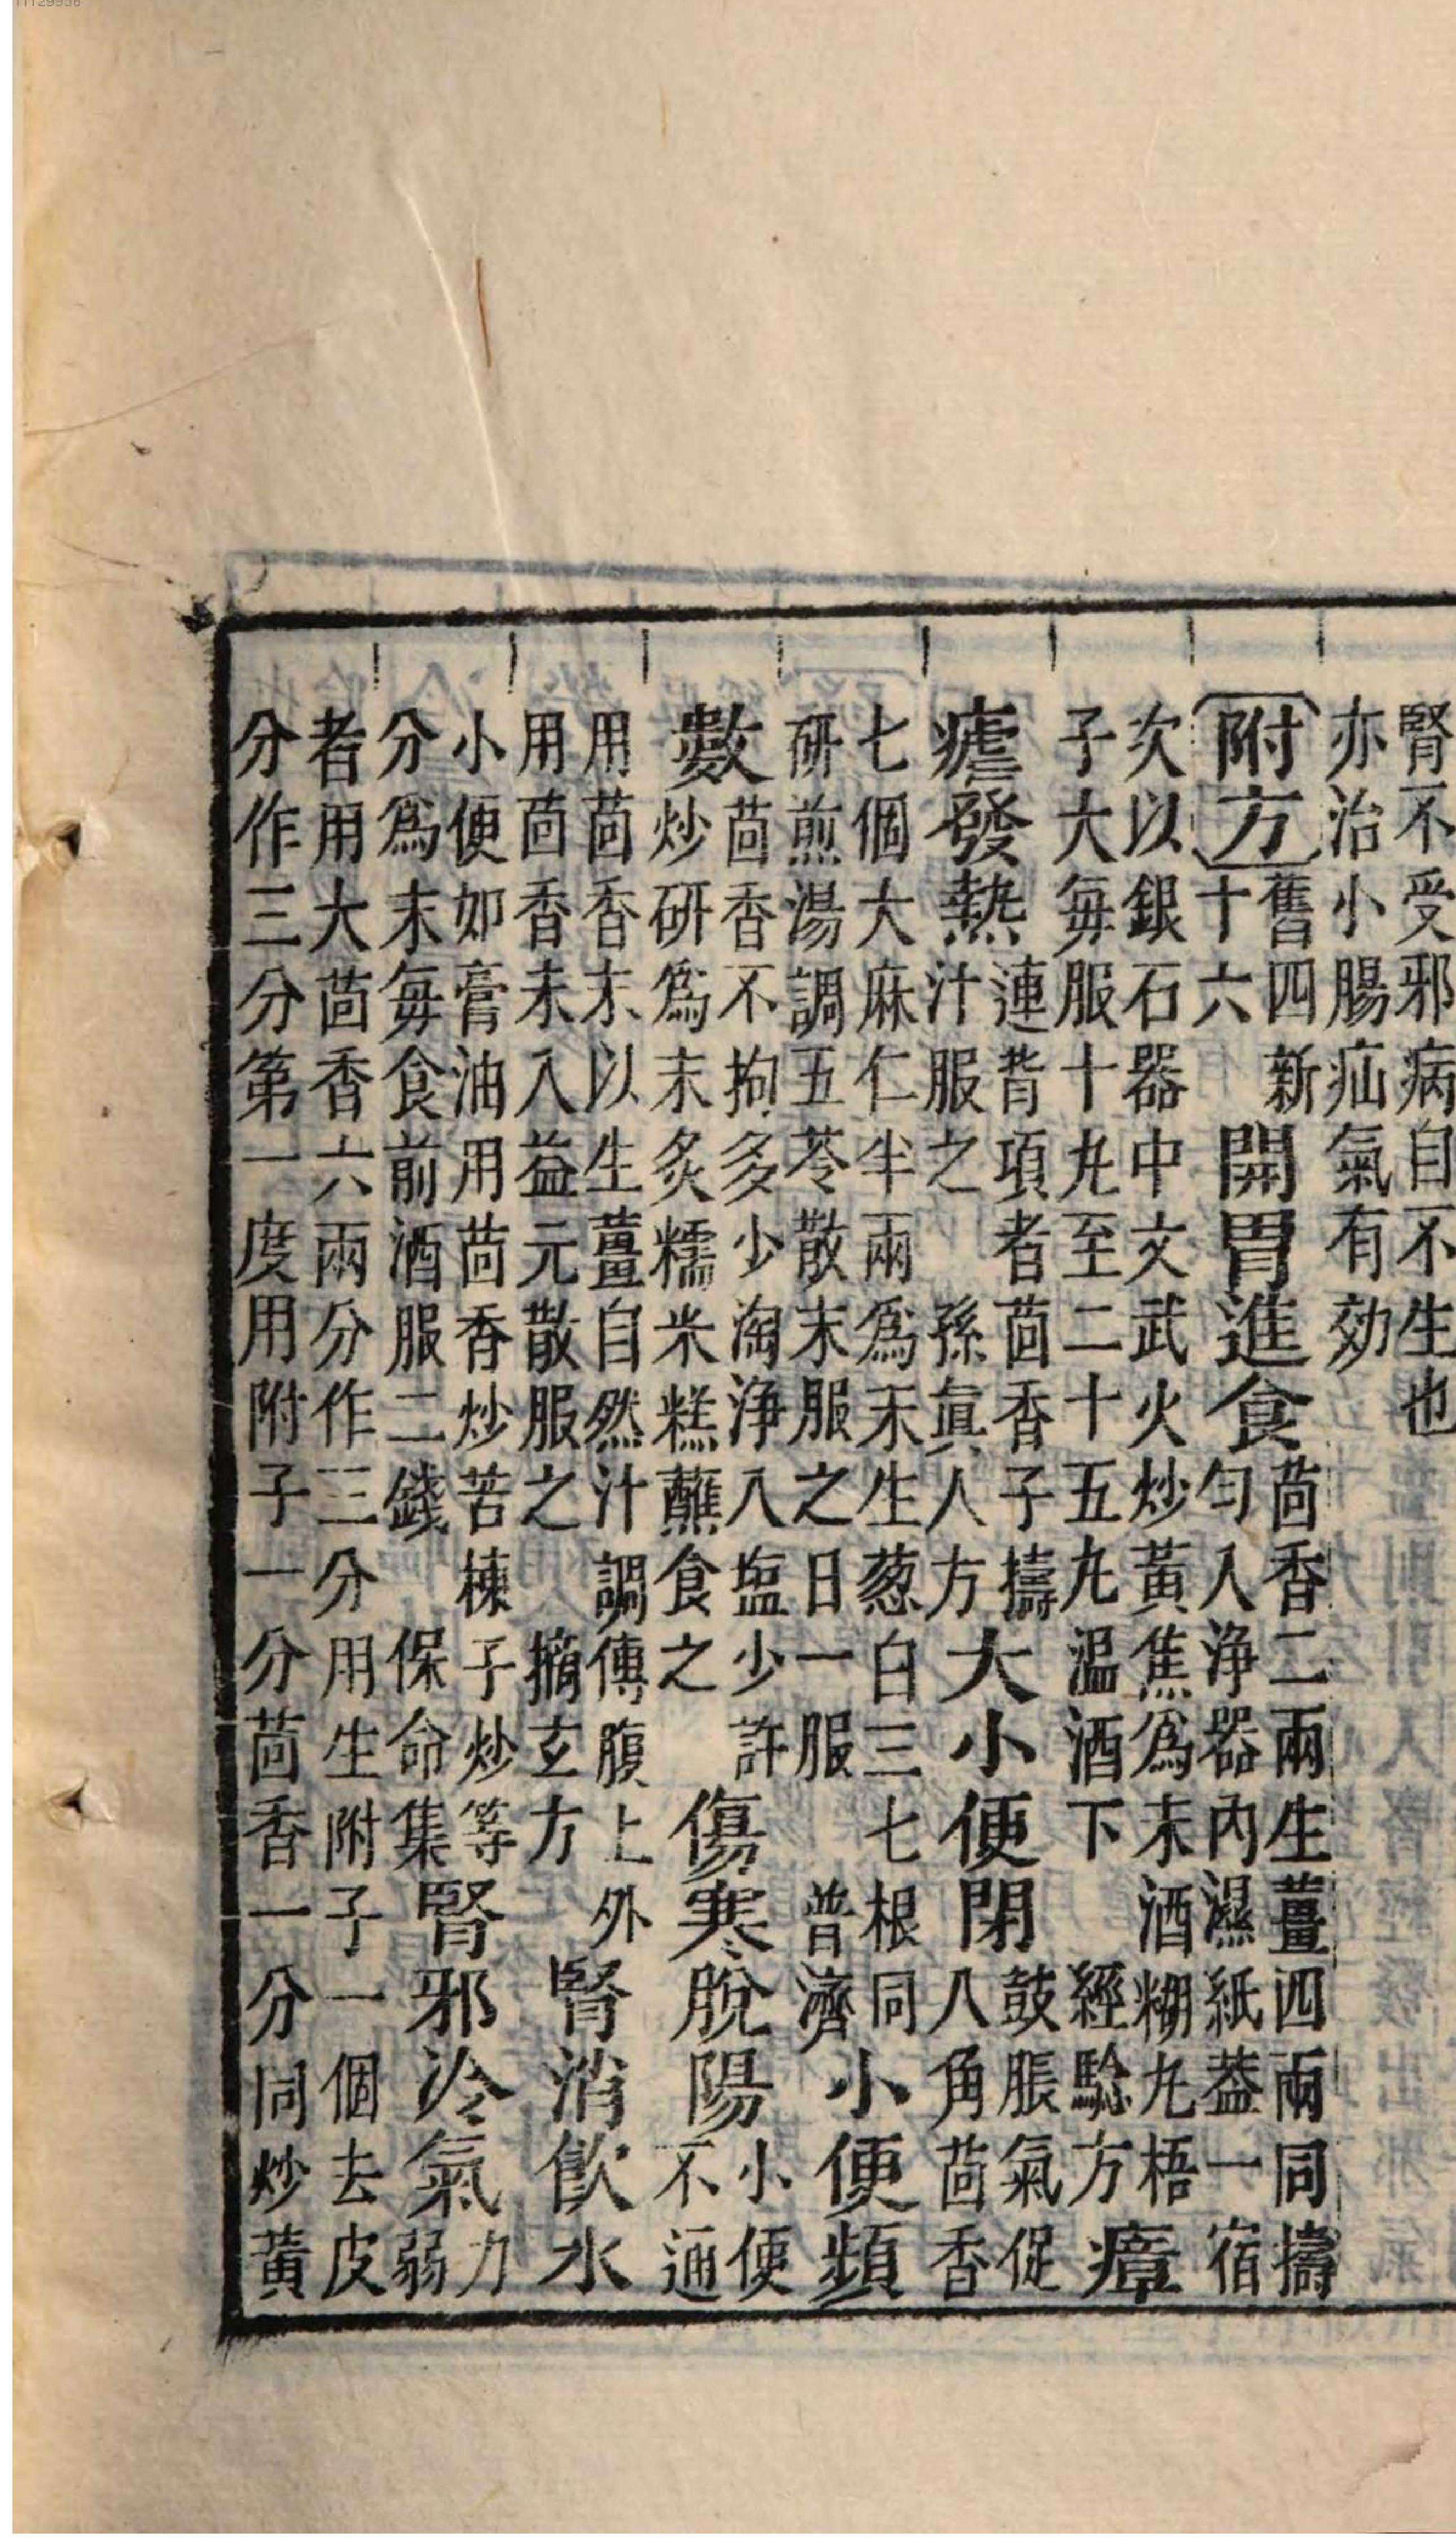 腎不受邪病自不生也
亦治小腸疝氣有効
附方
舊四新
十六
開胃進食
茴香二兩生薑四兩同擣
勻入淨器內濕紙葢一宿
次以銀石器中文武火炒黃焦爲末酒糊丸梧
子大每服十丸至二十五丸温酒下 經驗方
瘴
瘧發熱
連背項者茴香子擣
汁服之 孫眞人方
大小便閉
鼓脹氣促
八角茴香
七個大麻仁半兩爲末生葱白三七根同
研煎湯調五苓散末服之日一服 普濟
小便頻
數
茴香不拘多少淘淨入塩少許
炒研爲末炙糯米糕蘸食之
傷寒脫陽
小便
不通
用茴香末以生薑自然汁調傅腹上外
用茴香末入益元散服之 摘玄方
腎消飲水
小便如膏油用茴香炒苦楝子炒等
分爲末每食前酒服二錢 保命集
腎邪冷氣
力
弱
者用大茴香六兩分作三分用生附子一個去皮
分作三分第一度用附子一分茴香一分同炒黃